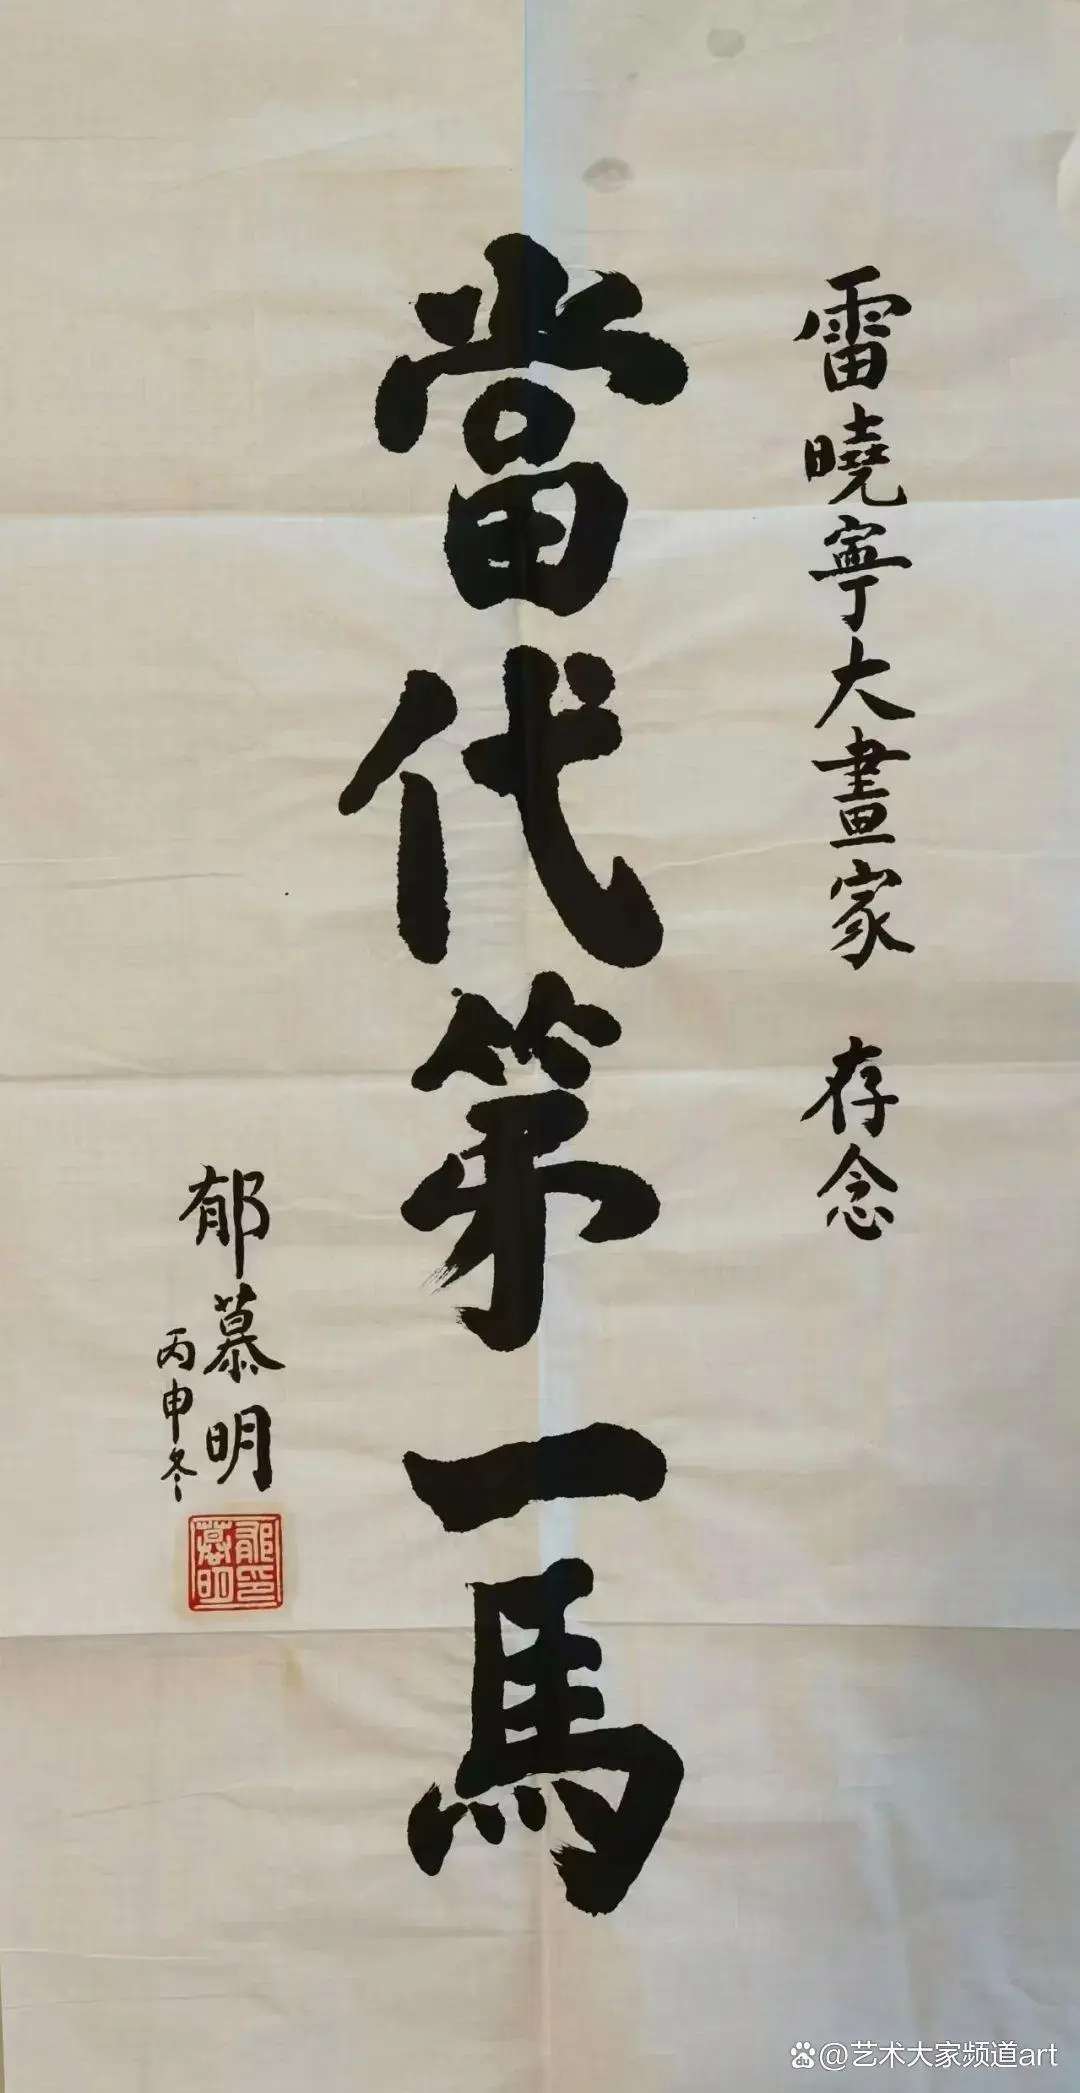 雷曉寧大畫家 存念
當代第一馬
郁慕明
丙申冬
郁慕明印
@艺术大家频道art